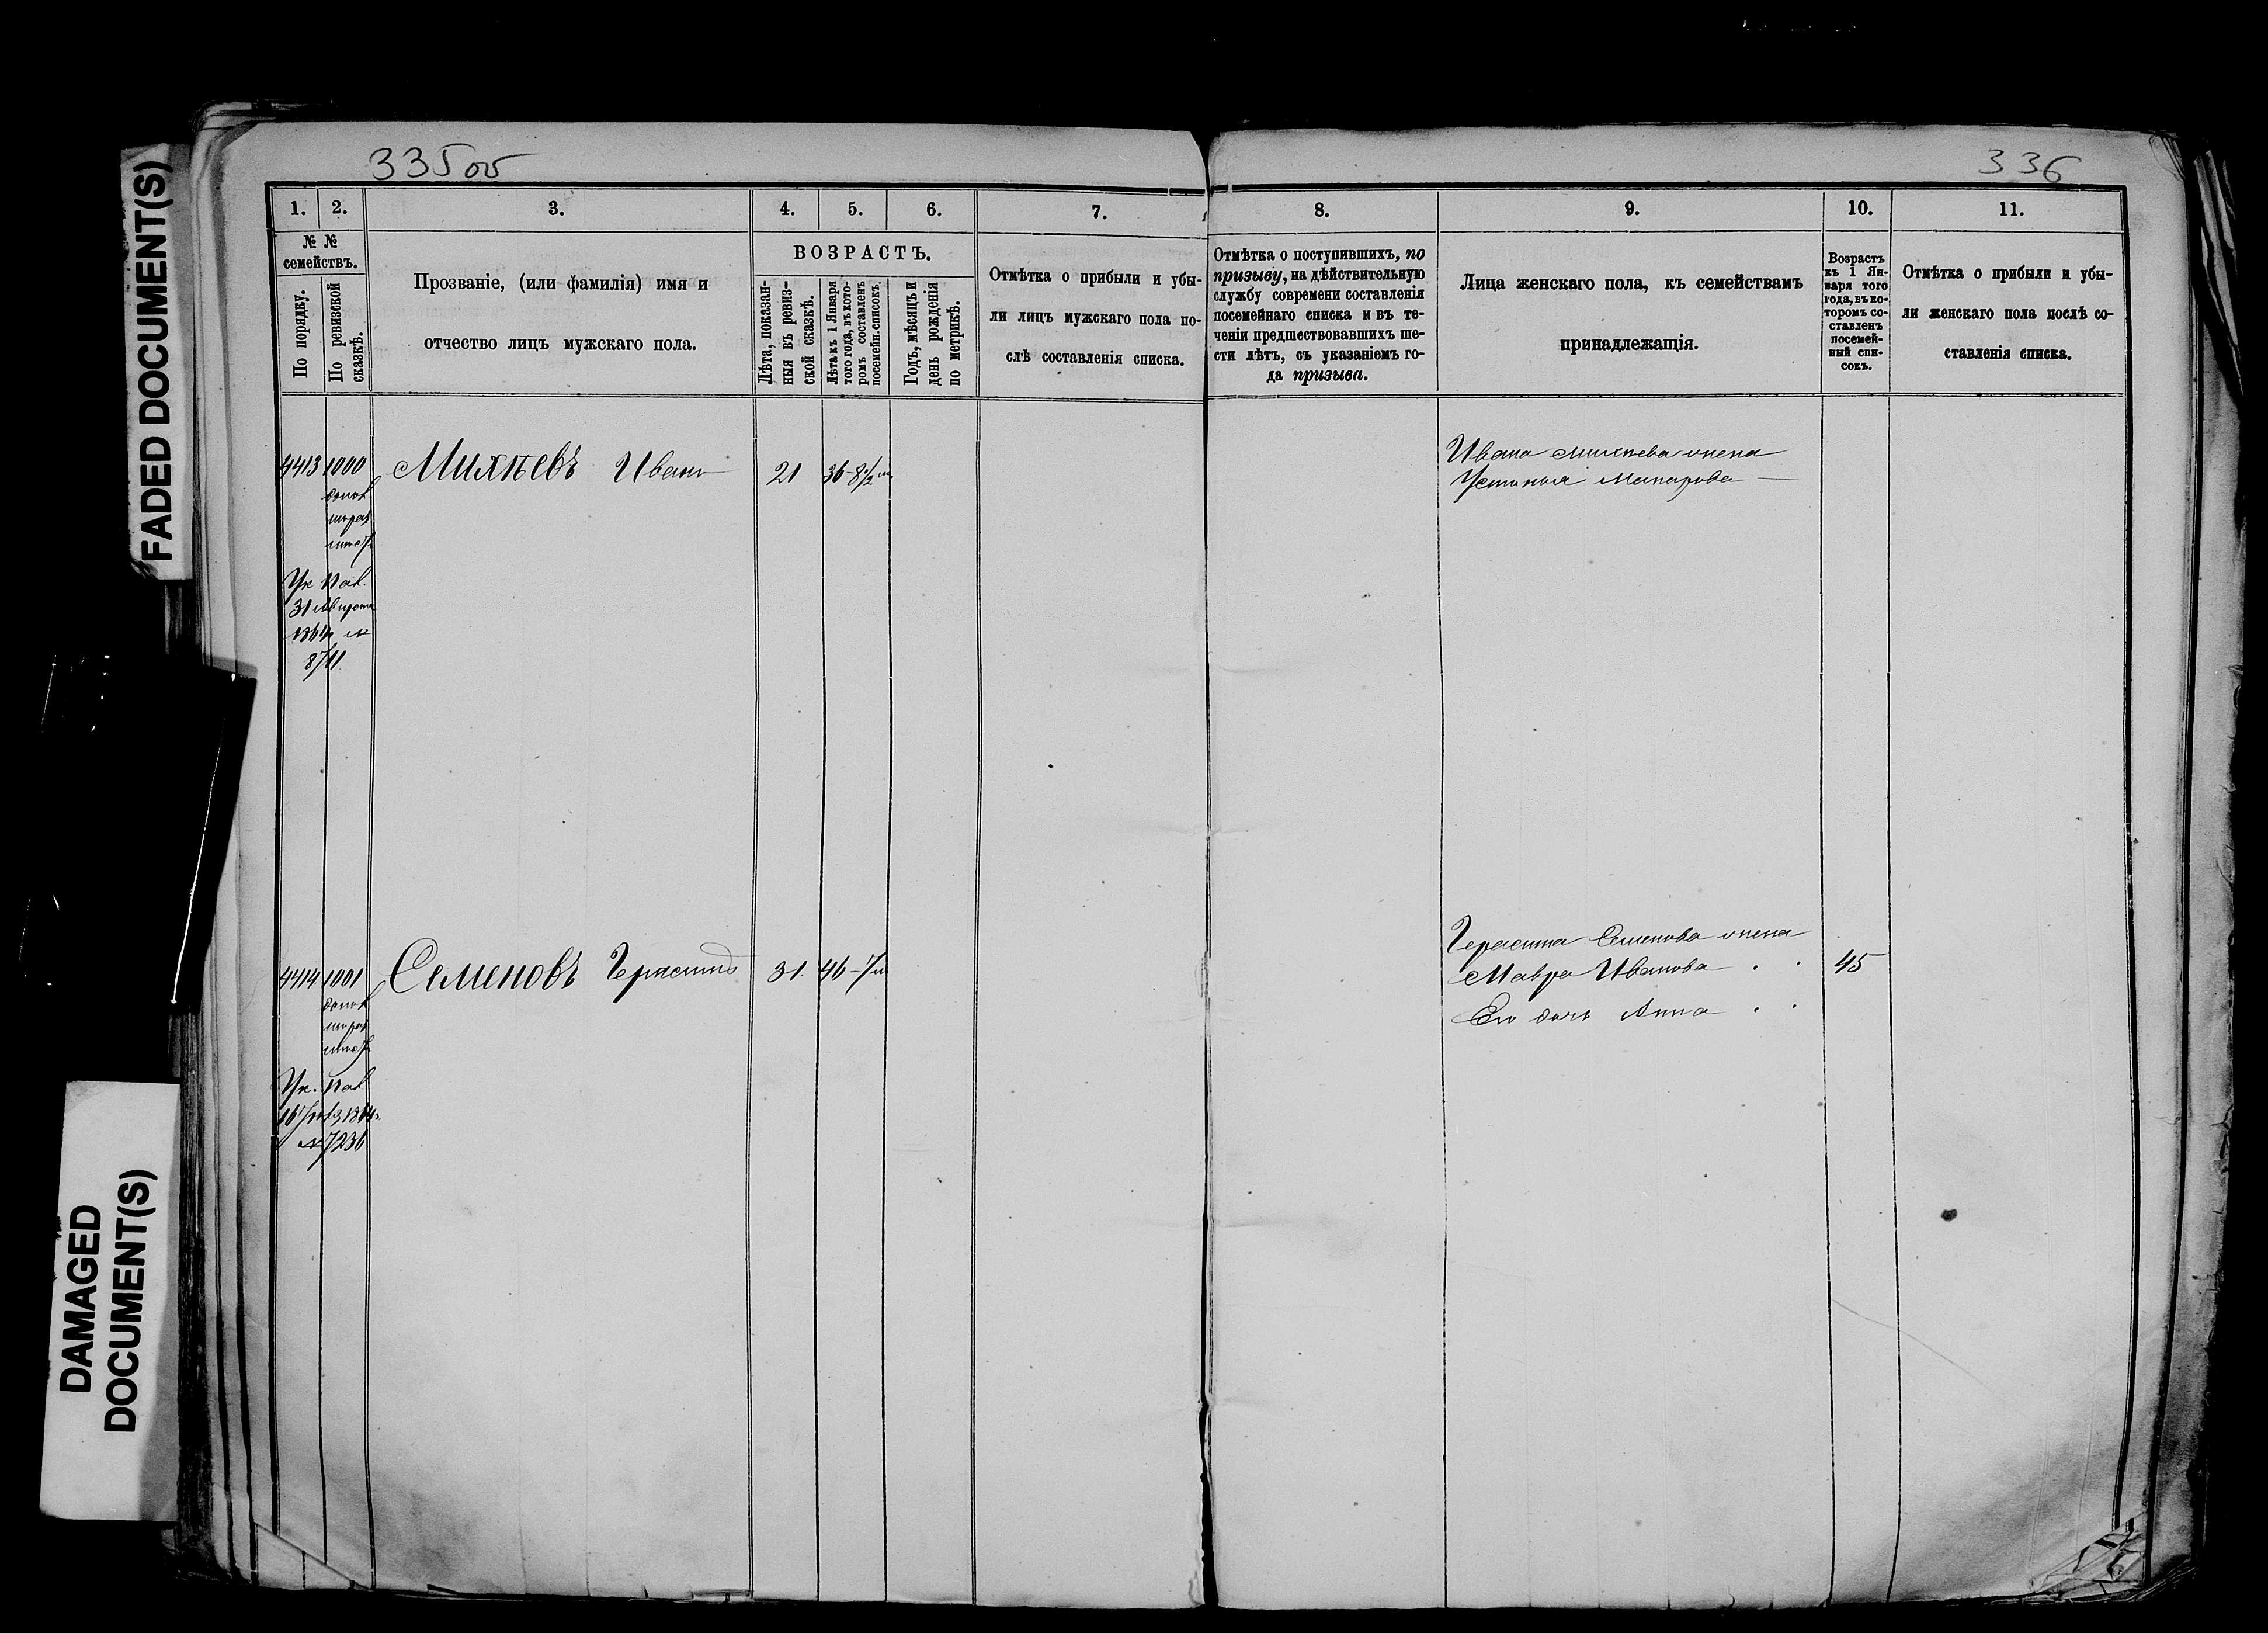 FADED DOCUMENT(S)
DAMAGED
DOCUMENT(S)
335об
336
1.
2.
3.
4.
5.
6.
7.
8.
9.
10.
11.
№ №
семействъ.
По порядку.
По ревизской
сказкѣ.
Прозваніе, (или фамилія) имя и
отчество лицъ мужскаго пола.
ВОЗРАСТЪ.
Лѣта, показан-
ныя въ ревиз-
ской сказкѣ.
Лѣта къ 1 Января
того года, въ кото-
ромъ составленъ
посемейн. списокъ.
Годъ, мѣсяцъ и
день рожденія
по метрикѣ.
Отмѣтка о прибыли и убы-
ли лицъ мужскаго пола по-
слѣ составленія списка.
Отмѣтка о поступившихъ, по
призыву, на дѣйствительную
службу современи составленія
посемейнаго списка и въ те-
ченіи предшествовавшихъ ше-
сти лѣтъ, съ указаніемъ го-
да призыва.
Лица женскаго пола, къ семействамъ
принадлежащія.
Возрастъ
къ 1 Ян-
варя того
года, въ ко-
торомъ со-
ставленъ
посемей-
ный спи-
сокъ.
Отмѣтка о прибыли и убы-
ли женскаго пола послѣ со-
ставленія списка.
4413
1000
Михѣевъ Иванъ
21
36-8½ м
Ук. Пал.
31 Августа
1864 №
8711.
Ивана Михѣева жена
Устинья Макарова
4414
1001
Семеновъ Герасимъ
31.
46-7м
Ук. Пал
№ 7236
Герасима Семенова жена
Мавра Иванова
45
Его дочь Анна